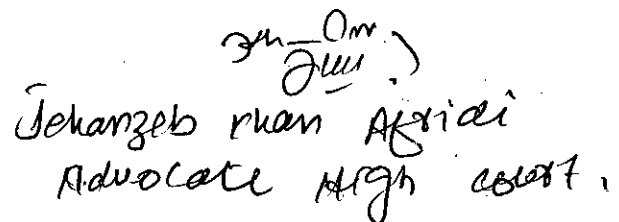 Jehanzeb Khan Afridi
Advocate High Court.